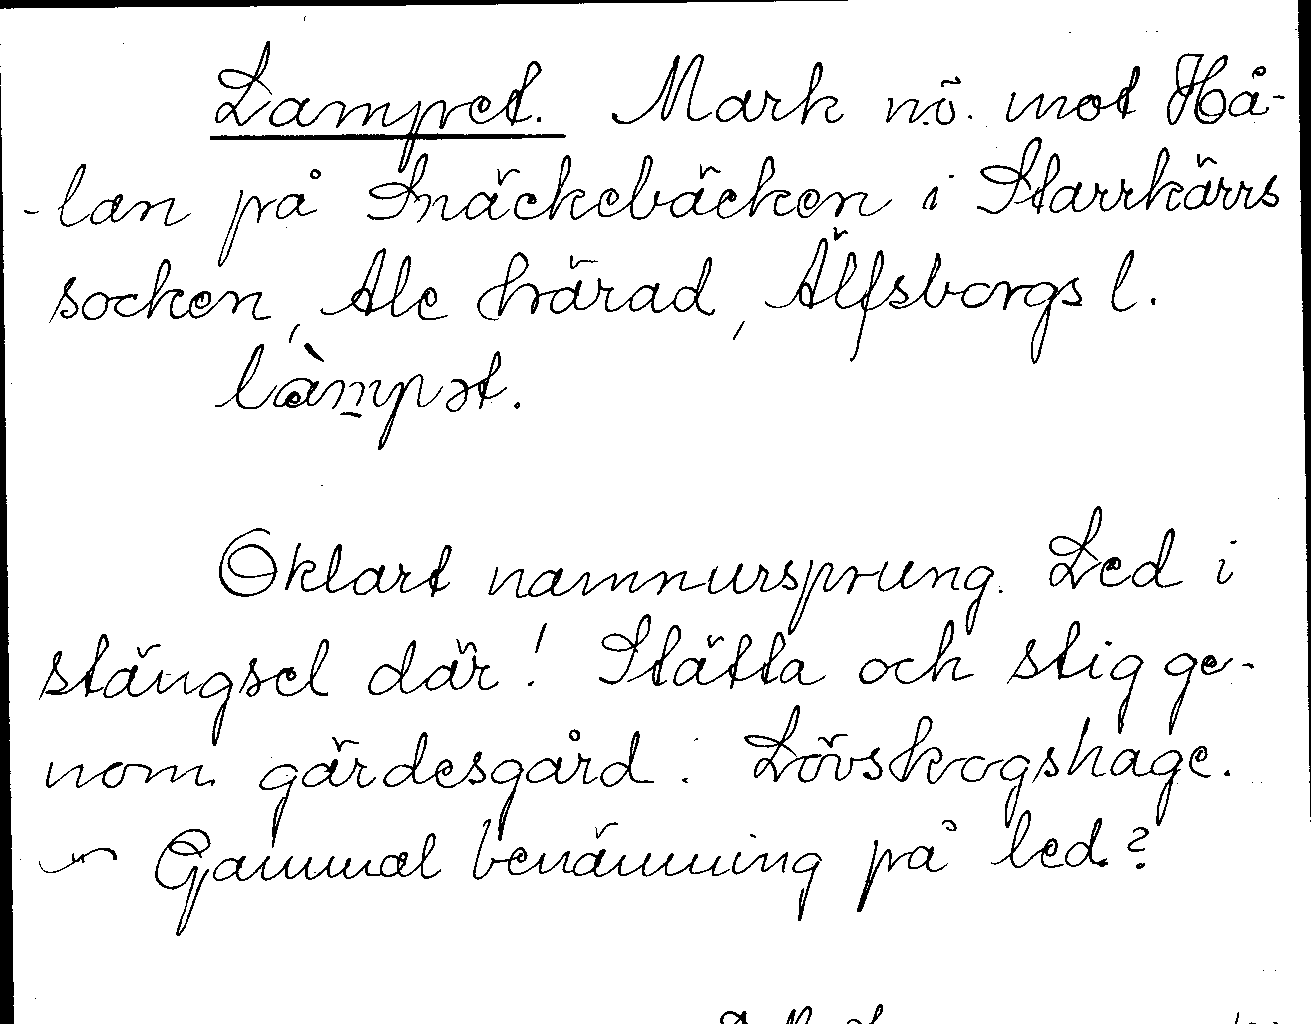 Lampet. Mark nö. mot Hå-
-lan på Snäckebäcken i Starrkärrs
socken, Ale härad, Älfsborgs l.
làmpət.
Oklart namnursprung. Led i
stängsel där! Stätta och stig ge-
nom gärdesgård. Lövskogshage.
~ Gammal benämning på led?